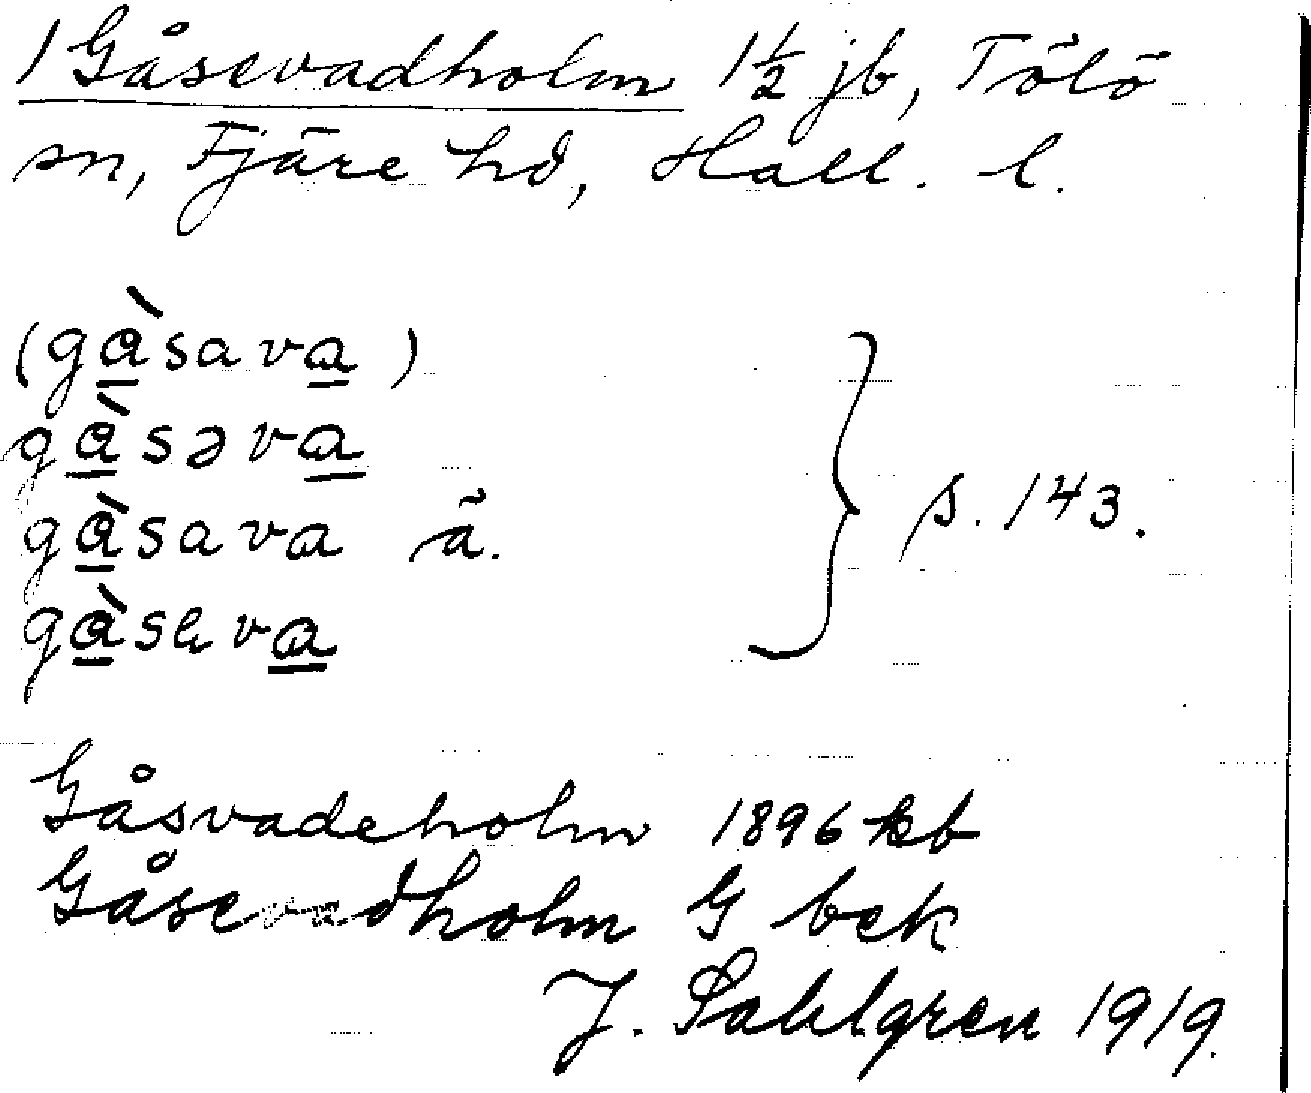 1 Gåsevadholm 1½ jb, Tölö
sn, Fjäre hd, Hall. l.
(gàsava)
gàsəva
gàsava ä.
gàsava
} s. 143.
Gåsvadeholm 1896 kb
Gåsevadholm G bek
J. Sahlgren 1919.